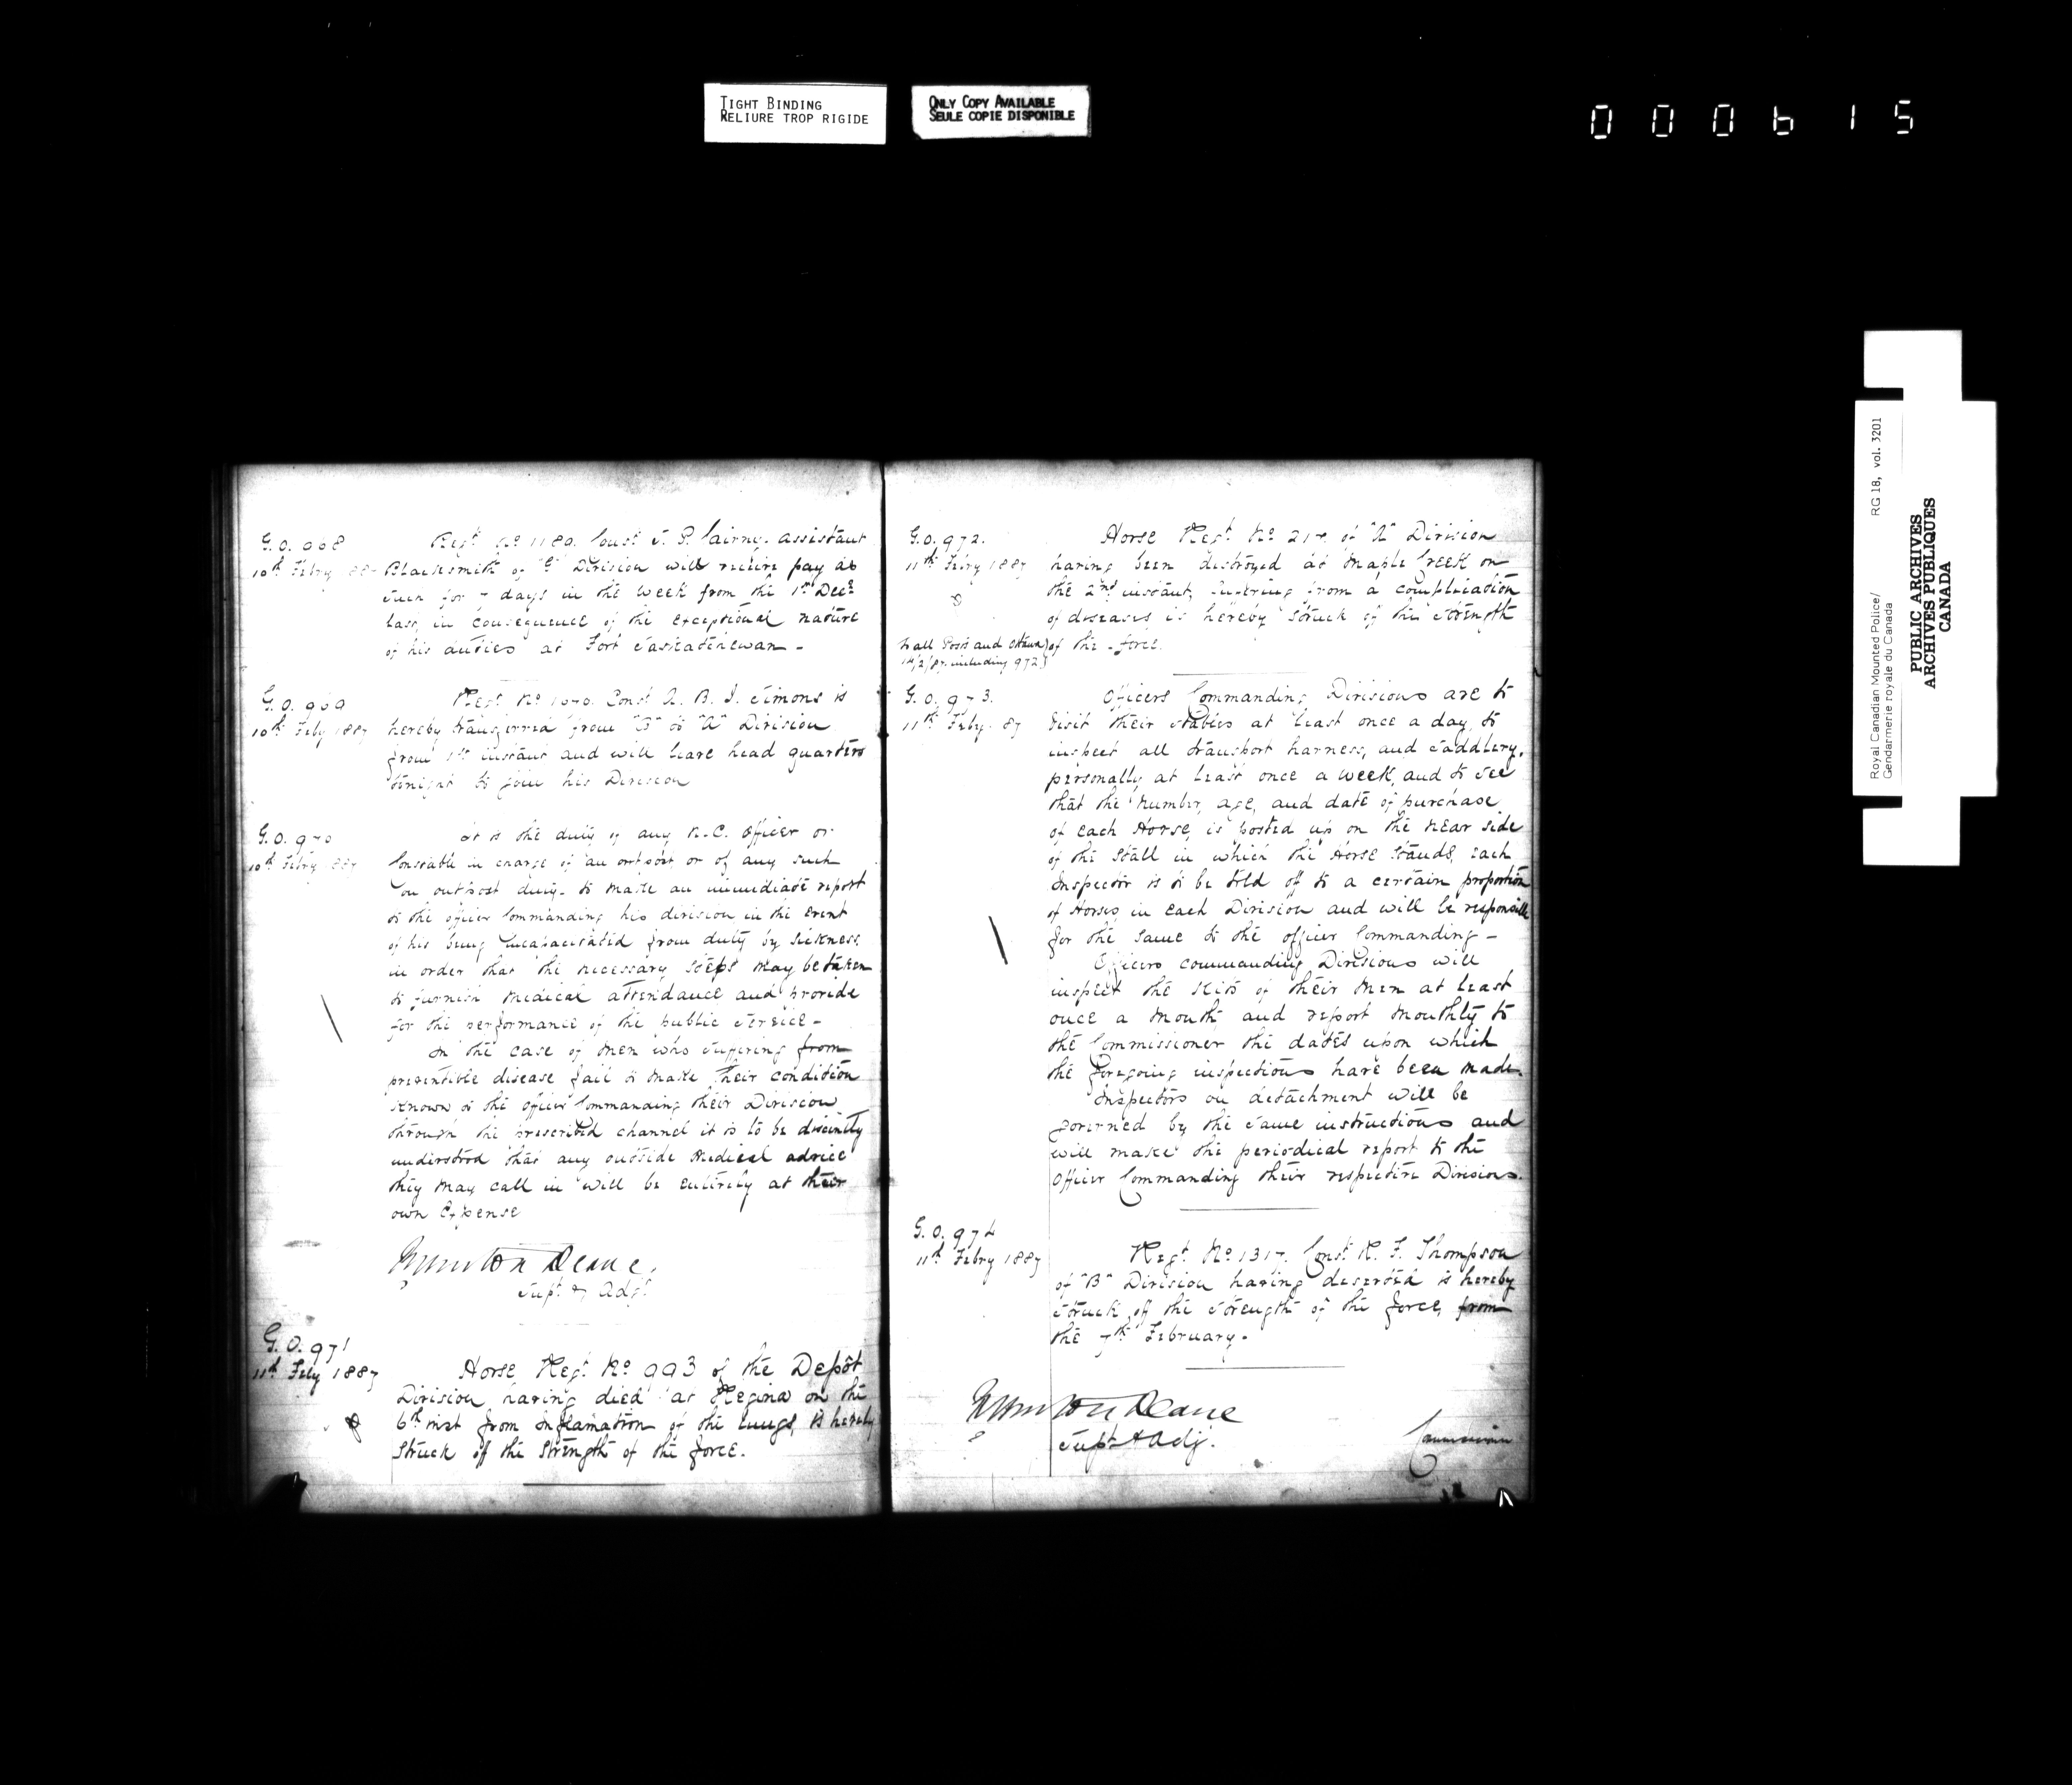 TIGHT BINDING
RELIURE TROP RIGIDE
ONLY COPY AVAILABLE
SEULE COPIE DISPONIBLE
000615
G.O. 968
10th Febry 188
Regt No 1180. Const J. P. Cairny. assistant
Blacksmith of "G" Division will receive pay as
such for 7 days in the week from the 1st Decr
last, in consequence of the exceptional nature
of his duties at Fort Saskatchewan -
G.O. 969
10th Feby 1887
Regt No Const A. B. J. Simons is
hereby transferred from "B" to "A" Division
from 1st instant and will leave head quarters
tonight to join his Division
G.O. 970
10th Febry 1887
It is the duty of any N.C. Officer or
Constable in charge of an outpost or of any such
on outpost duty - to make an immediate report
to the officer Commanding his division in the event
of his being incapacitated from duty by sickness
in order that the necessary steps may be taken
to furnish medical attendance and provide
for the performance of the public service -
In the case of men who suffering from
preventible disease fail to make their condition
known to the officer Commanding their Division
through the prescribed channel it is to be distinctly
understood that any outside medical advice
they may call in will be entirely at their
own Expense
Deane.
Supt & Adjt
G.O. 971
11th Feby 1887
Horse Regt No 993 of the Depôt
Division having died at Regina on the
6th inst from Inflamation of the lungs, is hereby
struck off the strength of the force.
G.O. 972.
11th Febry 1887
Horse Regt No 217 of "A" Division
having been destroyed at Maple Creek on
the 2nd instant, suffering from a complication
of diseases is hereby struck of the strength
of the force.
To all Posts and Ottawa
14/2/87. including 972
G.O. 973.
11th Feby. 87
Officers Commanding Divisions are to
visit their stables at least once a day, to
inspect all transport harness, and saddlery,
personally at least once a week, and to see
that the number, age, and date of purchase
of each Horse, is posted up on the near side
of the stall in which the Horse stands, each
Inspector is to be told off to a certain proportion
of Horses in each Division and will be responsible
for the same to the officer Commanding -
Officers commanding Divisions will
inspect the kits of their men at least
once a month and report monthly to
the Commissioner the dates upon which
the foregoing inspections have been made.
Inspectors on detachment will be
governed by the same instructions and
will make the periodical report to the
Officer Commanding their respective Divisions.
G.O. 974
11th Febry 1887
Regt No 1317. Const R. F. Thompson
of "B" Division having deserted is hereby
struck off the strength of the force, from
the 7th February.
Deane
Supt & Adj.
Commissioner
Royal Canadian Mounted Police/
Gendarmerie royale du Canada
RG 18, vol. 3201
PUBLIC ARCHIVES
ARCHIVES PUBLIQUES
CANADA